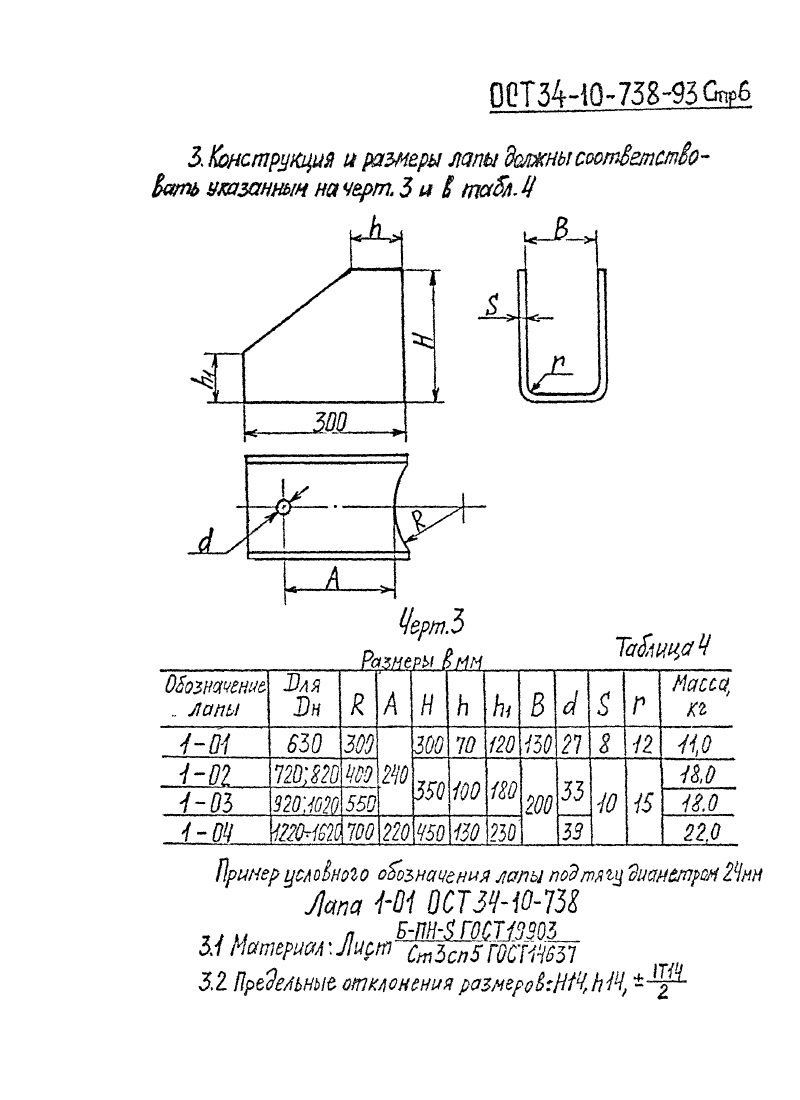 ОСТ 34-10-738-93 Стр 6
3. Конструкция и размеры лапы должны соответство-
вать указанным на черт. 3 и в табл. 4
h
B
S
H
r
h1
300
d
R
A
Черт. 3
Таблица 4
Размеры в мм
Обозначение лапы Для Dн R A H h h1 B d S r Масса, кг
1-01 630 300 240 300 70 120 130 27 8 12 11,0
1-02 720; 820 400 350 100 180 200 33 10 15 18.0
1-03 920; 1020 550 18.0
1-04 1220÷1620 700 220 450 130 230 39 22,0
Пример условного обозначения лапы под тягу диаметром 24мм
Лапа 1-01 ОСТ 34-10-738
3.1 Материал: Лист Б-ПН-S ГОСТ 19903
Ст3сп5 ГОСТ 14637
3.2 Предельные отклонения размеров: H14, h14, ± IT14
2